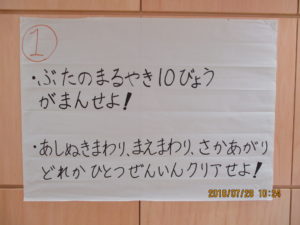 1
・ぶたのまるやき10びょう
がまんせよ!
・あしぬきまわり、まえまわり、さかあがり
どれかひとつぜんいんクリアせよ!
2018/07/20 10:24